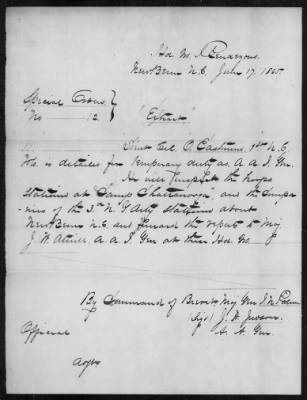 Hd Qrs Rendezvous
New Bern N.C. July 17, 1865.
Special Orders
No 12
"Extract"
II. Lieut Col. O. 1st N.C.
Vols. is detailed for temporary duty as A. A. I. Gen.
He will Inspect the troops
Stationed at "Camp Chattanooga", and the Companies of the 3rd N.Y. Arty Stationed about
New Bern N.C. and forward the report to Maj
J. W. A. A. I. Gen at these Hd. Qrs.
By Command of Brevet Maj Gen I. N. Palmer
(Sgd) J. A. Judson
A. A. Gen.
Official